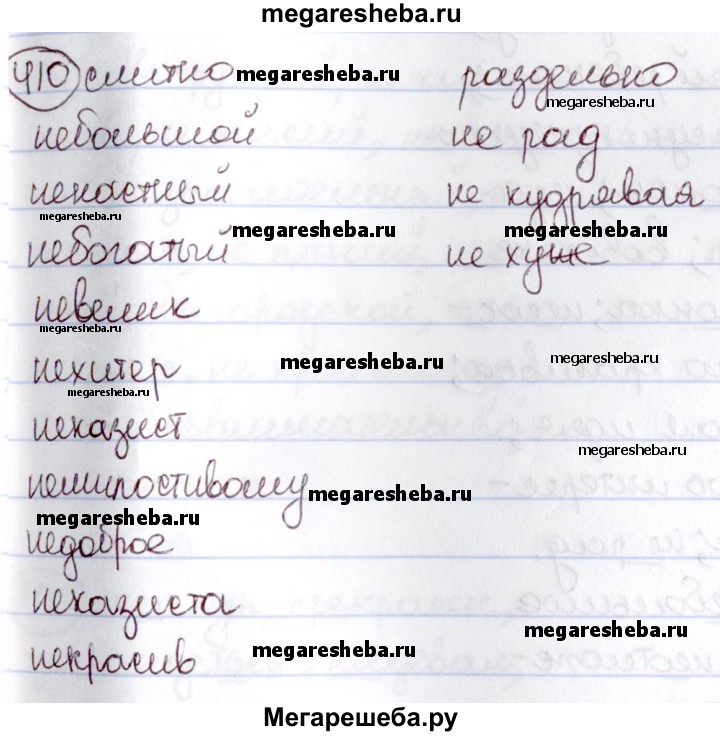 megaresheba.ru
410 слитно megaresheba.ru раздельно
megaresheba.ru
небольшой не рад
ненастный не кудрявая
megaresheba.ru
небогатый megaresheba.ru не хуже megaresheba.ru
невелик
megaresheba.ru
нехитер megaresheba.ru megaresheba.ru
megaresheba.ru
неказист
megaresheba.ru
немилостивому megaresheba.ru
megaresheba.ru
недоброе
неказиста
megaresheba.ru
некрасив megaresheba.ru
Мегарешеба.ру